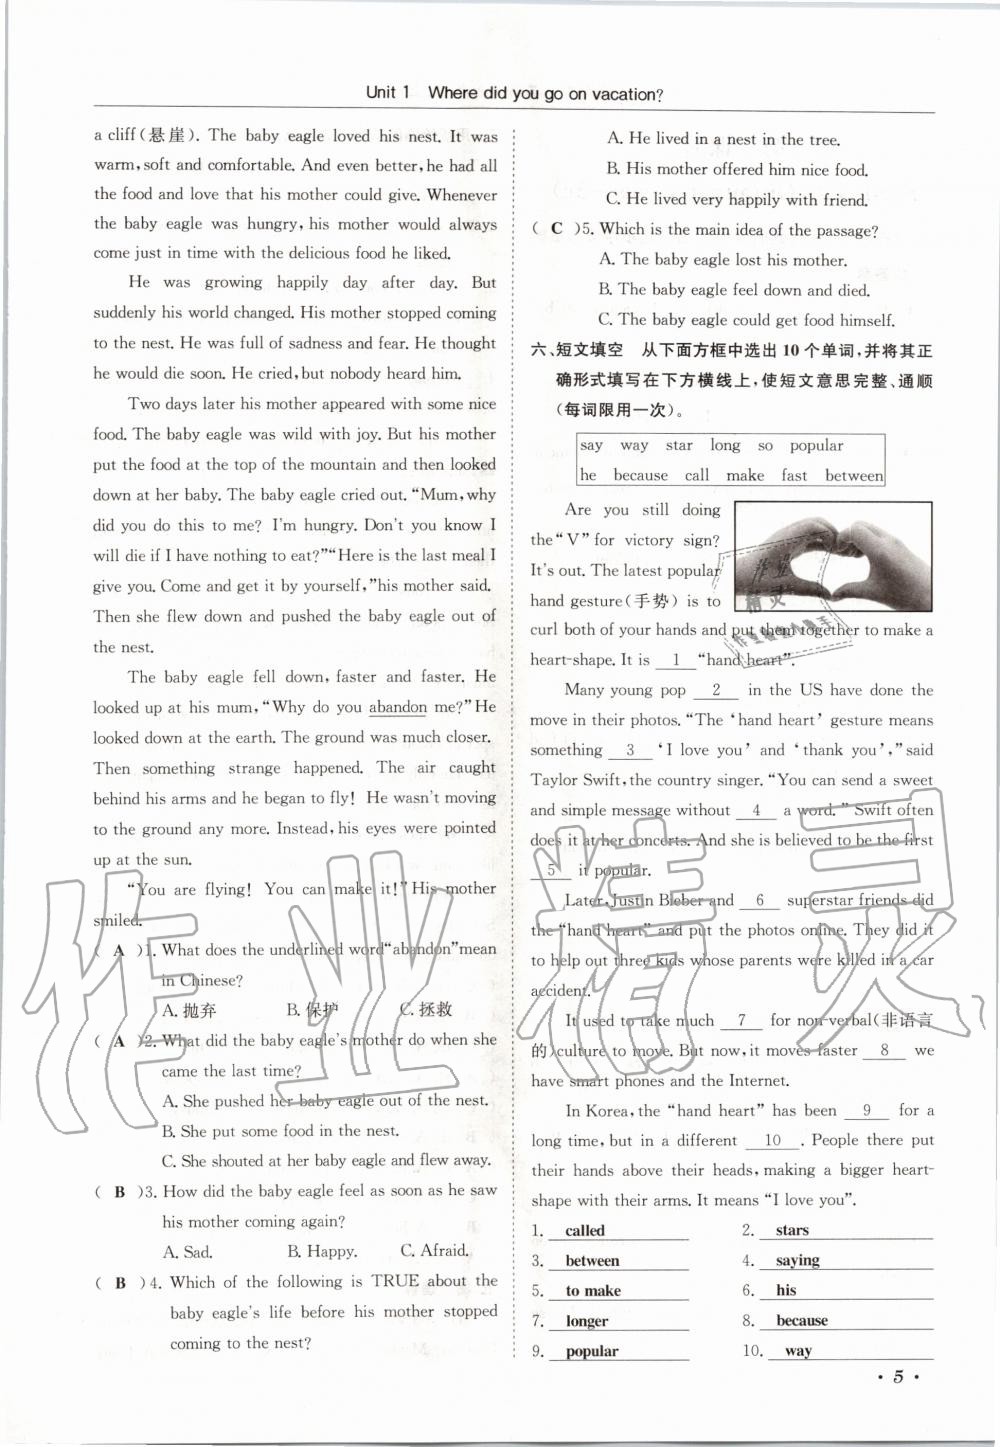 Unit 1 Where did you go on vacation?
a cliff(悬崖). The baby eagle loved his nest. It was
warm, soft and comfortable. And even better, he had all
the food and love that his mother could give. Whenever
the baby eagle was hungry, his mother would always
come just in time with the delicious food he liked.
He was growing happily day after day. But
suddenly his world changed. His mother stopped coming
to the nest. He was full of sadness and fear. He thought
he would die soon. He cried, but nobody heard him.
Two days later his mother appeared with some nice
food. The baby eagle was wild with joy. But his mother
put the food at the top of the mountain and then looked
down at her baby. The baby eagle cried out. “Mum, why
did you do this to me? I'm hungry. Don't you know I
will die if I have nothing to eat?”“Here is the last meal I
give you. Come and get it by yourself,”his mother said.
Then she flew down and pushed the baby eagle out of
the nest.
The baby eagle fell down, faster and faster. He
looked up at his mum, “Why do you abandon me?”He
looked down at the earth. The ground was much closer.
Then something strange happened. The air caught
behind his arms and he began to fly! He wasn't moving
to the ground any more. Instead, his eyes were pointed
up at the sun.
“You are flying! You can make it!”His mother
smiled.
( A )1. What does the underlined word“abandon”mean
in Chinese?
A. 抛弃 B. 保护 C. 拯救
( A )2. What did the baby eagle's mother do when she
came the last time?
A. She pushed her baby eagle out of the nest.
B. She put some food in the nest.
C. She shouted at her baby eagle and flew away.
( B )3. How did the baby eagle feel as soon as he saw
his mother coming again?
A. Sad. B. Happy. C. Afraid.
( B )4. Which of the following is TRUE about the
baby eagle's life before his mother stopped
coming to the nest?
A. He lived in a nest in the tree.
B. His mother offered him nice food.
C. He lived very happily with friend.
( C )5. Which is the main idea of the passage?
A. The baby eagle lost his mother.
B. The baby eagle feel down and died.
C. The baby eagle could get food himself.
六、短文填空 从下面方框中选出10个单词，并将其正
确形式填写在下方横线上，使短文意思完整、通顺
（每词限用一次）。
say way star long so popular
he because call make fast between
Are you still doing
the“V”for victory sign?
It's out. The latest popular
hand gesture(手势) is to
curl both of your hands and put them together to make a
heart-shape. It is 1 “hand heart”.
Many young pop 2 in the US have done the
move in their photos. “The ‘hand heart’ gesture means
something 3 ‘I love you’ and ‘thank you’,”said
Taylor Swift, the country singer. “You can send a sweet
and simple message without 4 a word.” Swift often
does it at her concerts. And she is believed to be the first
5 it popular.
Later, Justin Bieber and 6 superstar friends did
the “hand heart” and put the photos online. They did it
to help out three kids whose parents were killed in a car
accident.
It used to take much 7 for non-verbal(非语言
的)culture to move. But now, it moves faster 8 we
have smart phones and the Internet.
In Korea, the “hand heart” has been 9 for a
long time, but in a different 10 . People there put
their hands above their heads, making a bigger heart-
shape with their arms. It means “I love you”.
1. called 2. stars
3. between 4. saying
5. to make 6. his
7. longer 8. because
9. popular 10. way
· 5 ·
作业精灵